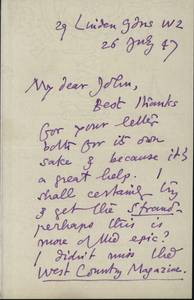 29 Linden Gdns W2
26 July 47
My dear John,
Best thanks
for your letter
both for its own
sake & because it's
a great help. I
shall certainly try
& get the Strand -
perhaps this is
more of the epic?
I didn't miss the
West Country Magazine.